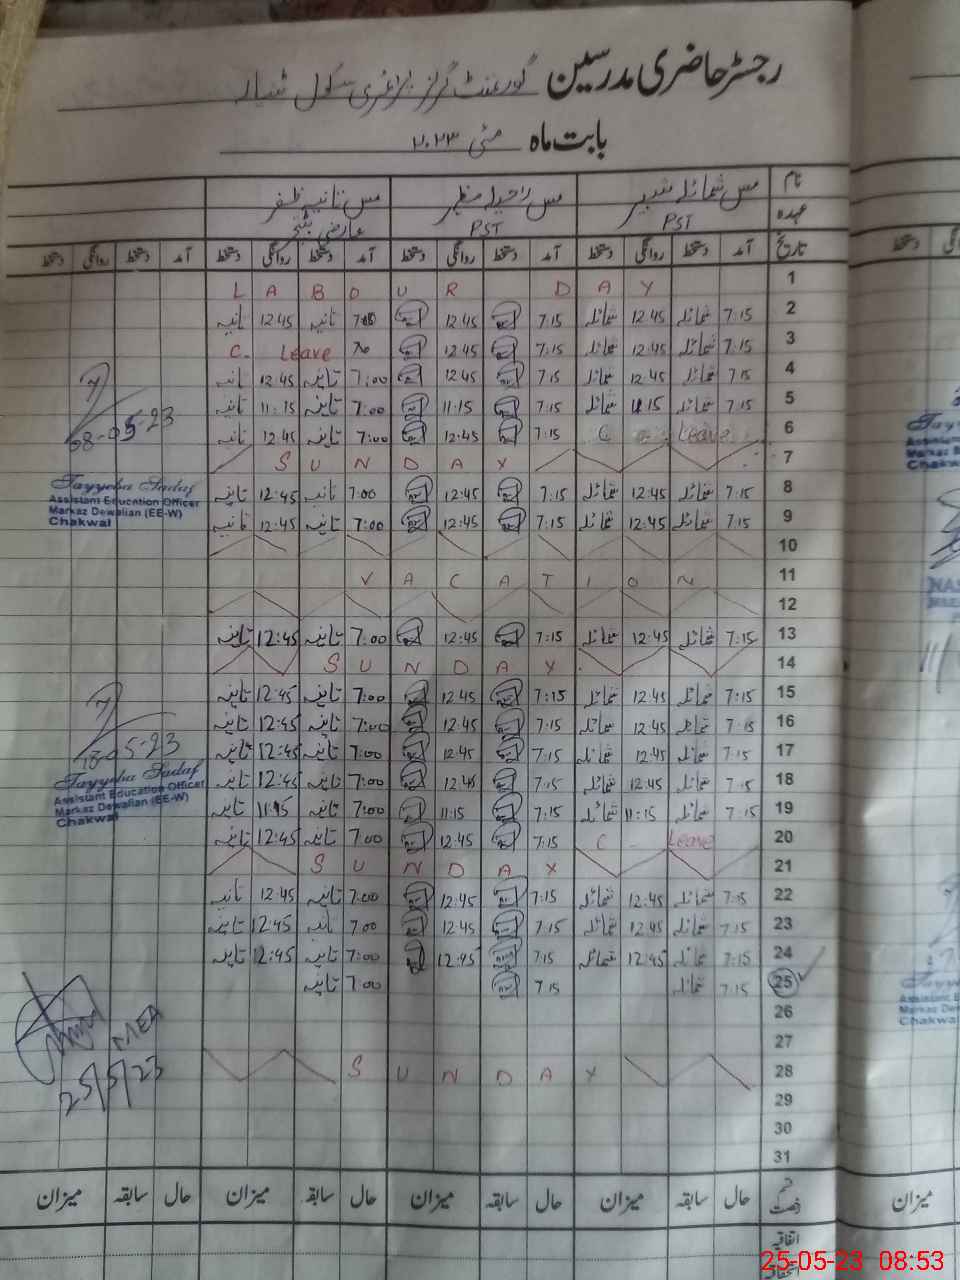 رجسٹر حاضری مدرسین گورنمنٹ گرلز پرائمری سکول
بابت ماہ مئی ۲۰۲۳
نام مس شمائلہ شبیر مس راحیلہ مظہر مس ثانیہ ظفر
عہدہ PST PST عارضی ٹیچر
تاریخ آمد دستخط روانگی دستخط آمد دستخط روانگی دستخط آمد دستخط روانگی دستخط آمد دستخط روانگی دستخط
1 LABOUR DAY
2 7:15 شمائلہ 12:45 شمائلہ 7:15 12:45 7:00 ثانیہ 12:45 ثانیہ
3 7:15 شمائلہ 12:45 شمائلہ 7:15 12:45 C. Leave
4 7:15 شمائلہ 12:45 شمائلہ 7:15 12:45 7:00 ثانیہ 12:45 ثانیہ
5 7:15 شمائلہ 11:15 شمائلہ 7:15 11:15 7:00 ثانیہ 11:15 ثانیہ
6 C Leave 7:15 12:45 7:00 ثانیہ 12:45 ثانیہ
7 SUNDAY
8 7:15 شمائلہ 12:45 شمائلہ 7:15 12:45 7:00 ثانیہ 12:45 ثانیہ
9 7:15 شمائلہ 12:45 شمائلہ 7:15 12:45 7:00 ثانیہ 12:45 ثانیہ
10
11 VACATION
12
13 7:15 شمائلہ 12:45 شمائلہ 7:15 12:45 7:00 ثانیہ 12:45 ثانیہ
14 SUNDAY
15 7:15 شمائلہ 12:45 شمائلہ 7:15 12:45 7:00 ثانیہ 12:45 ثانیہ
16 7:15 شمائلہ 12:45 شمائلہ 7:15 12:45 7:00 ثانیہ 12:45 ثانیہ
17 7:15 شمائلہ 12:45 شمائلہ 7:15 12:45 7:00 ثانیہ 12:45 ثانیہ
18 7:15 شمائلہ 12:45 شمائلہ 7:15 12:45 7:00 ثانیہ 12:45 ثانیہ
19 7:15 شمائلہ 11:15 شمائلہ 7:15 11:15 7:00 ثانیہ ثانیہ
20 C - Leave 7:15 12:45 7:00 ثانیہ 12:45 ثانیہ
21 SUNDAY
22 7:15 شمائلہ 12:45 شمائلہ 7:15 12:45 7:00 ثانیہ 12:45 ثانیہ
23 7:15 شمائلہ 12:45 شمائلہ 7:15 12:45 7:00 ثانیہ 12:45 ثانیہ
24 7:15 شمائلہ 12:45 شمائلہ 7:15 12:45 7:00 ثانیہ 12:45 ثانیہ
25 7:15 شمائلہ 7:15 7:00 ثانیہ
26
27
28 SUNDAY
29
30
31
حال سابقہ میزان حال سابقہ میزان حال سابقہ میزان
اتفاقیہ
08-05-23
Tayyeba Sadaf
Assistant Education Officer
Markaz Dewalian (EE-W)
Chakwal
5-23
Tayyeba Sadaf
Assistant Education Officer
Markaz Dewalian (EE-W)
Chakwal
MEA
25/5/23
دستخط
Chakwal
میزان
25-05-23 08:53